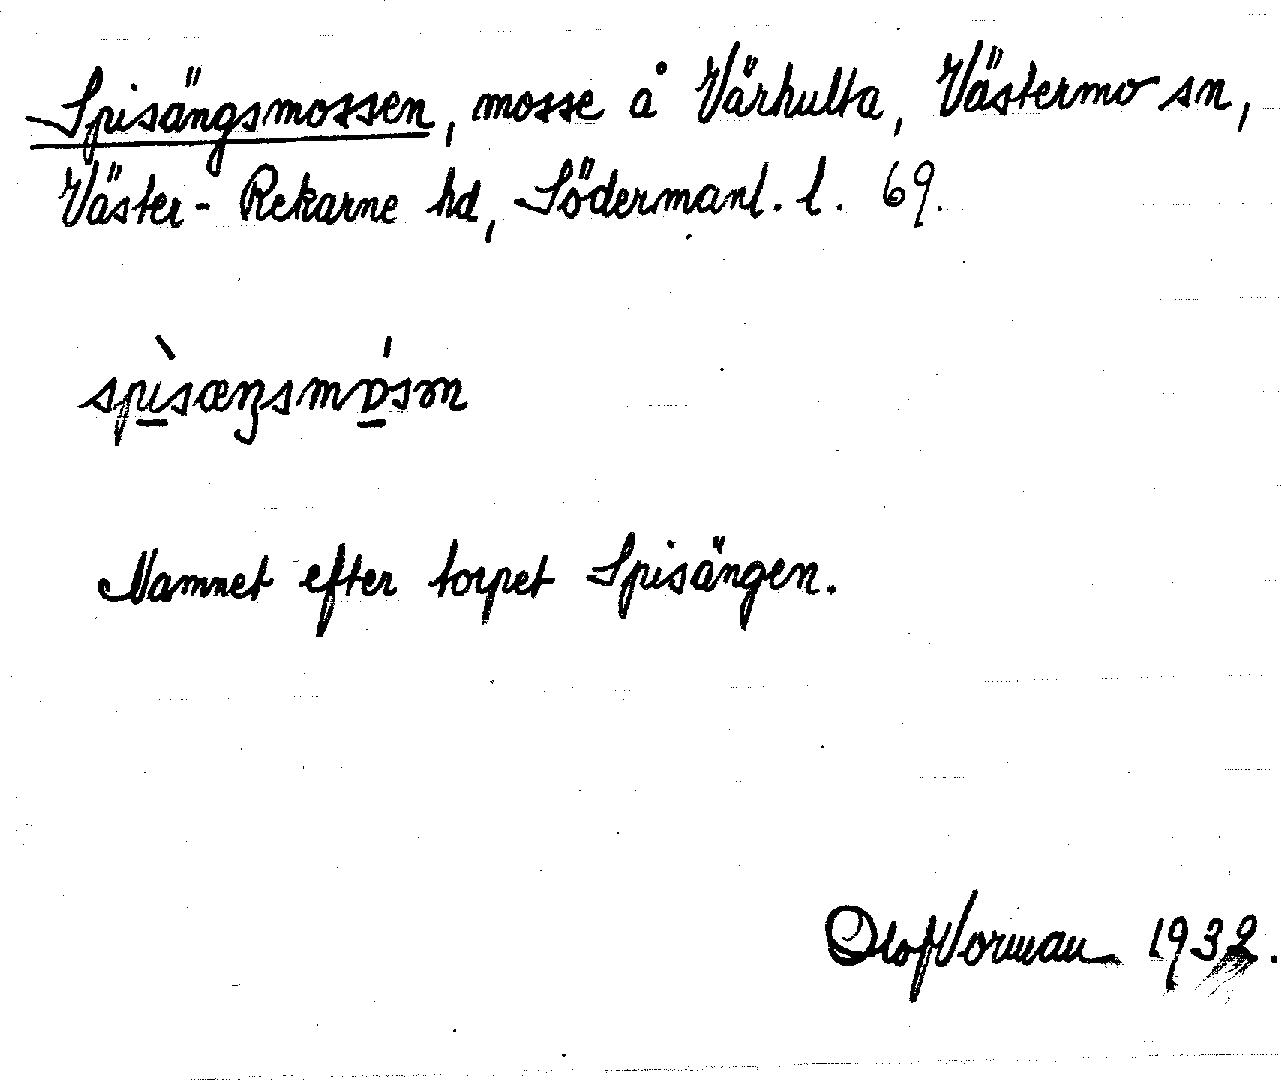 Spisängsmossen, mosse å Värhulta, Västermo sn,
Väster-Rekarne hd, Södermanl. l. 69.
spìsæŋsmósm
Namnet efter torpet Spisängen.
Olof Norman 1932.